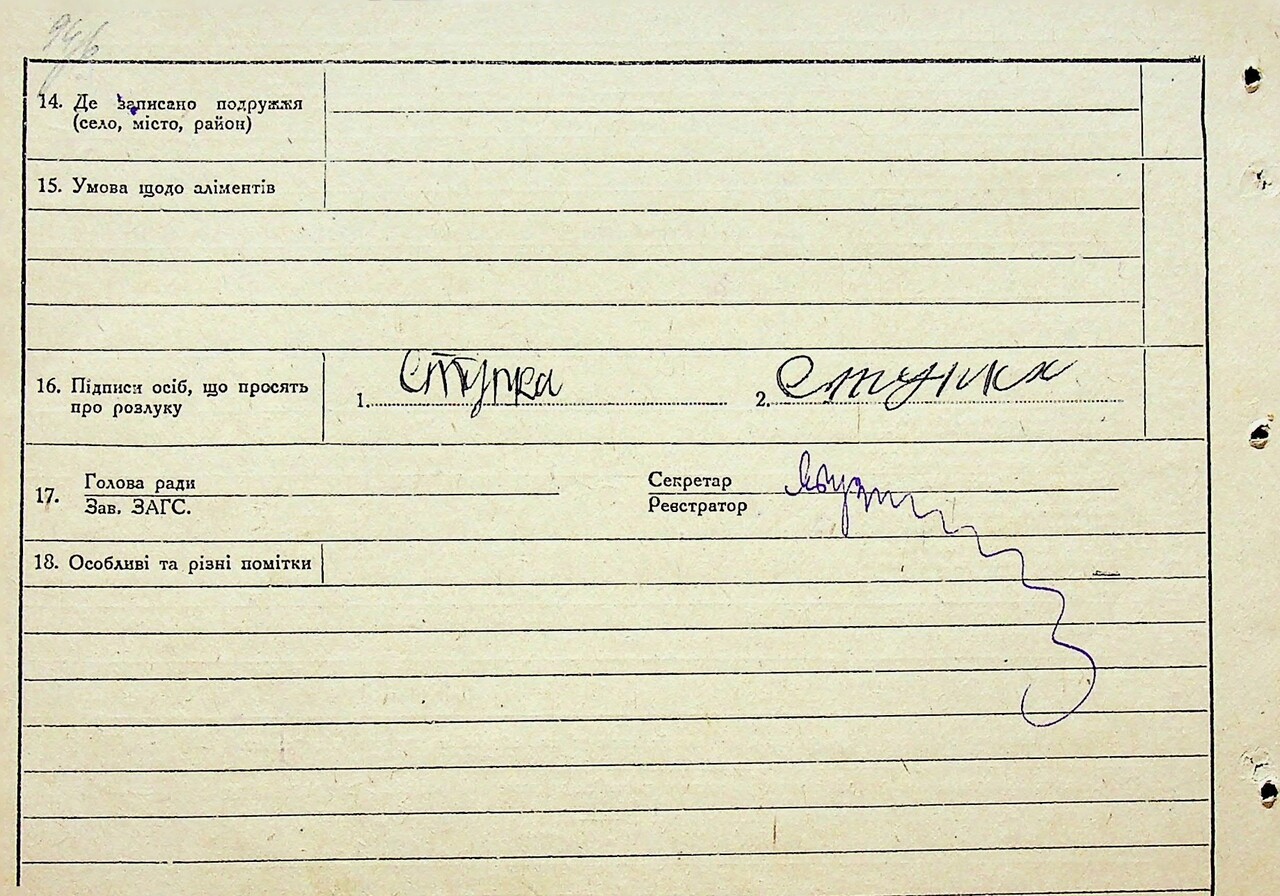 14. Де записано подружжя
(село, місто, район)
15. Умова щодо аліментів
16. Підписи осіб, що просять
про розлуку
1. Ступка
2. Ступка
17.
Голова ради
Зав. ЗАГС.
Секретар
Реєстратор
18. Особливі та різні помітки